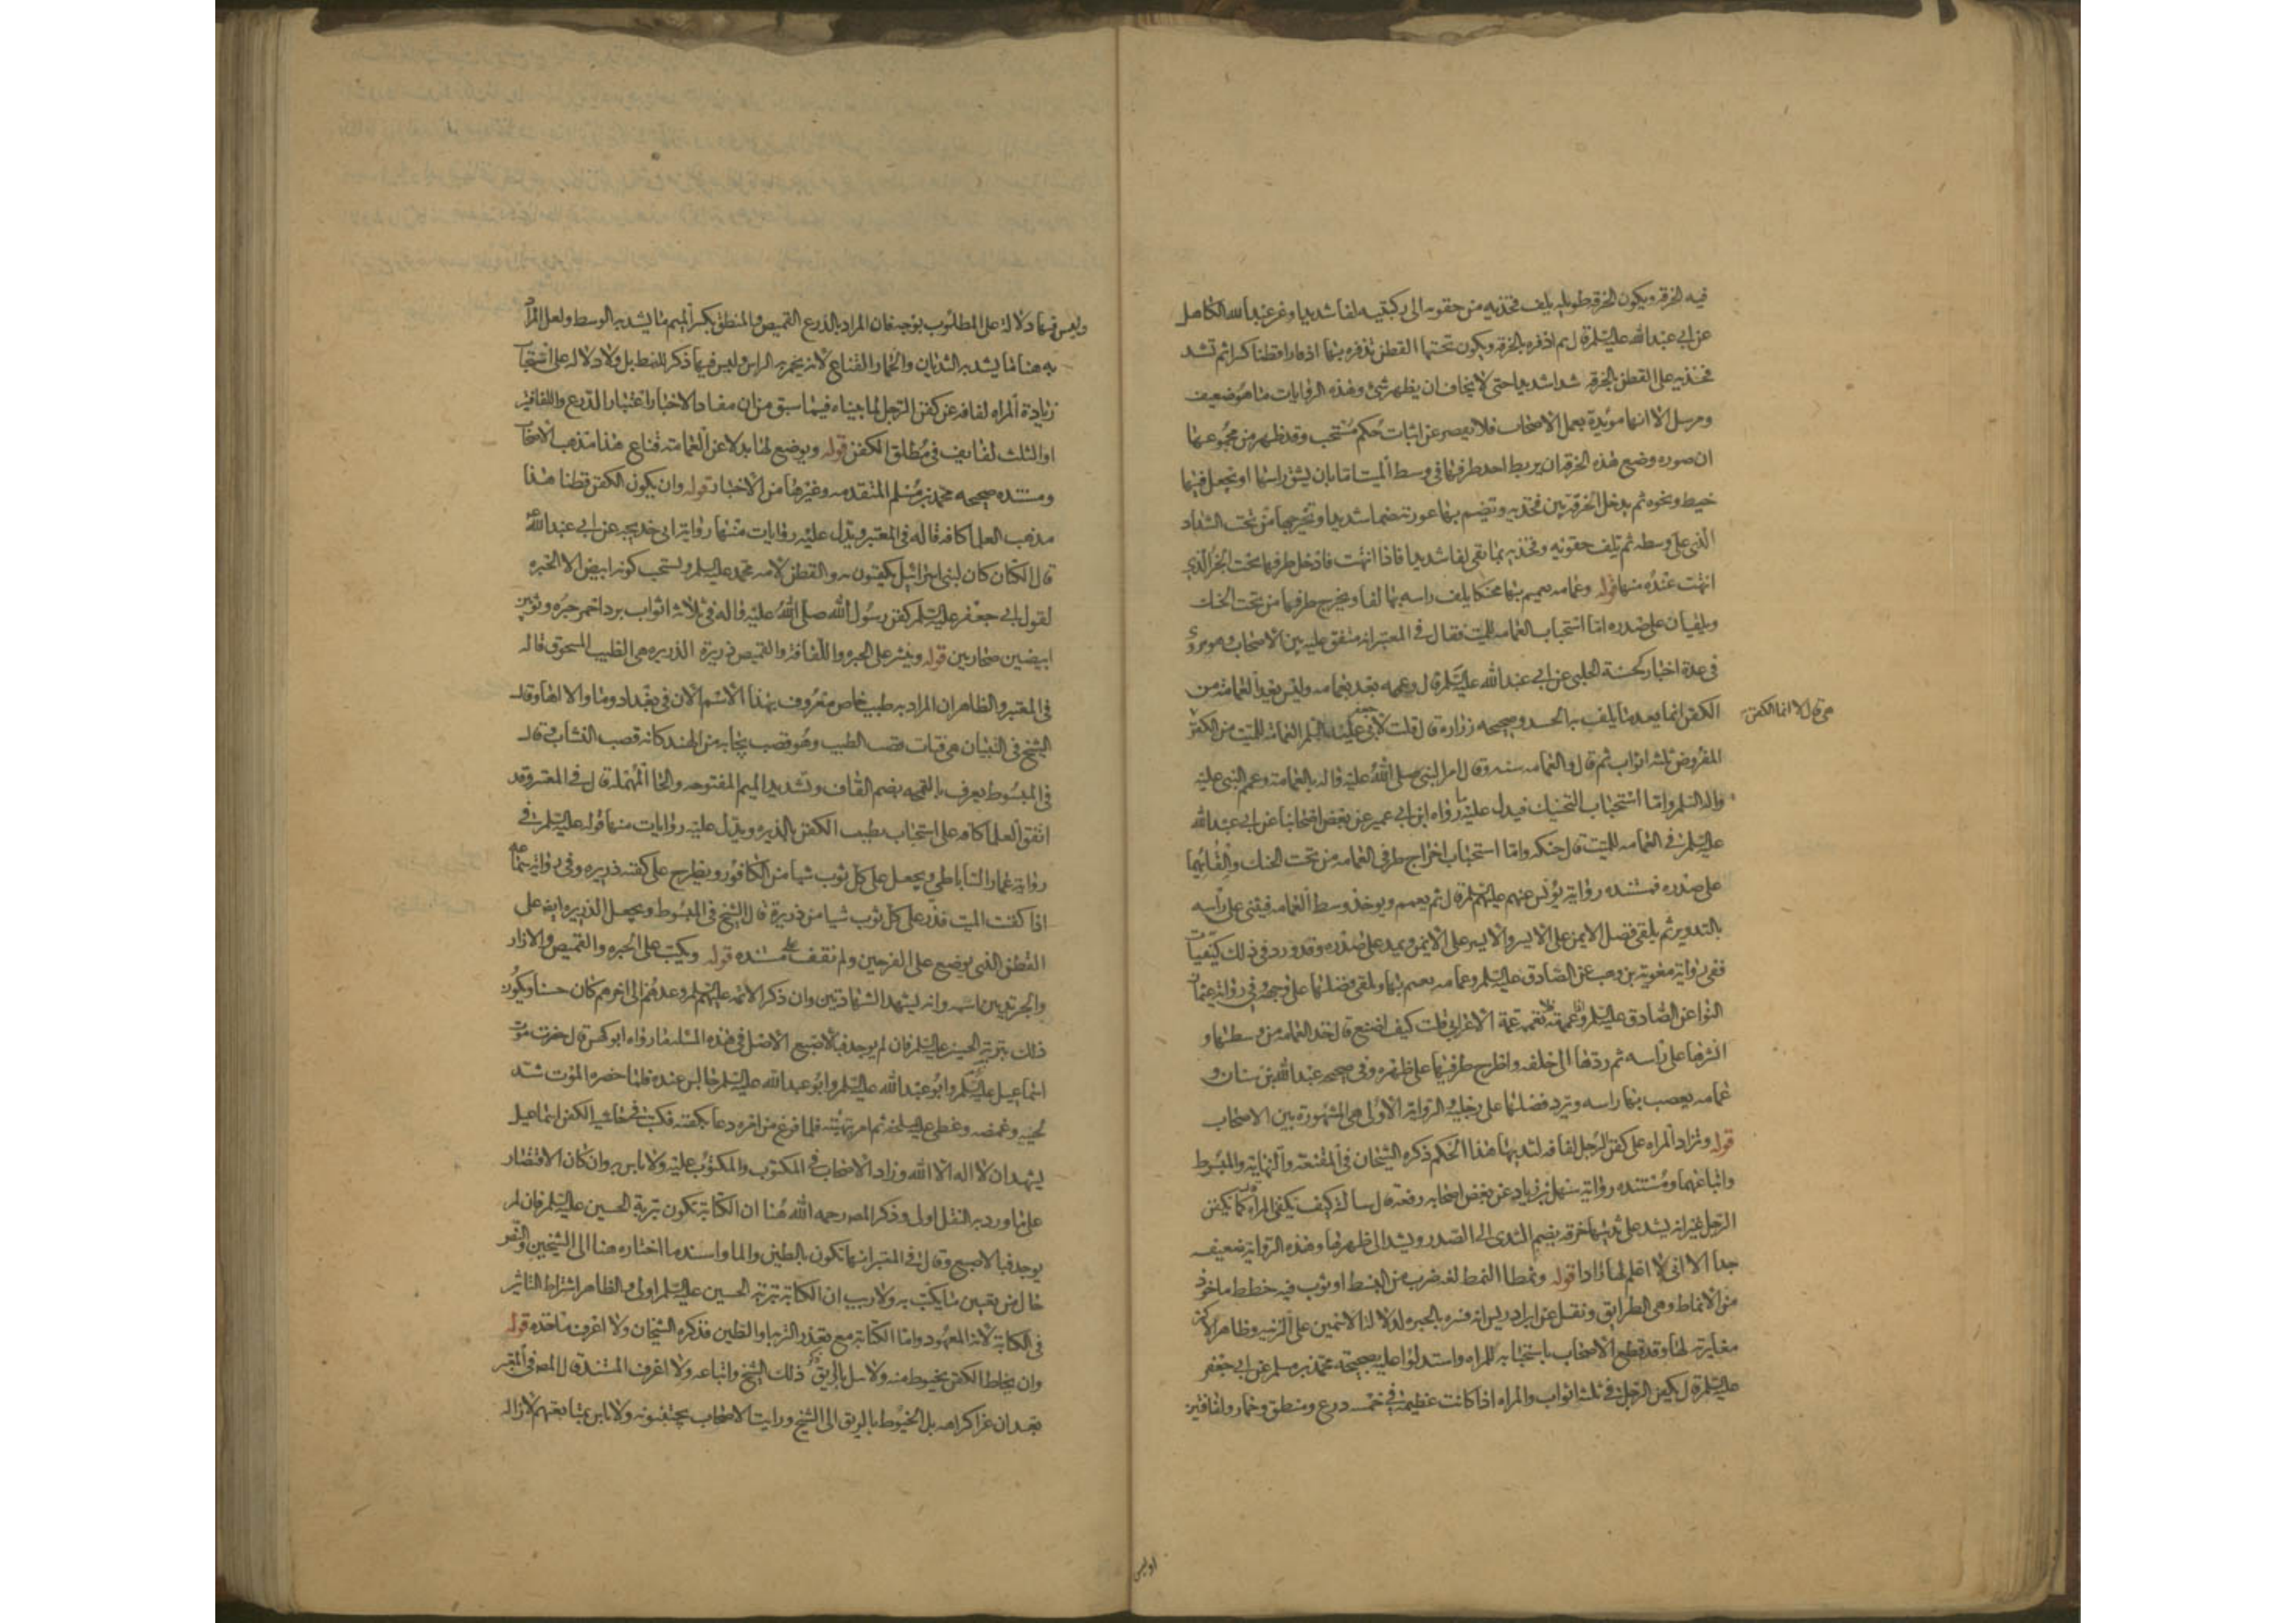 فيه الخرقه ويكون الخرقه طويله يلف فخذيه من حقويه الى ركبتيه لفا شديدا وعن عبد الله الكاهلى
عن ابى عبد الله عليه السلم قال ثم اذفره بالخرقه ويكون تحتها القطن تذفره بها اذفارا قطنا كثيرا ثم تشد
فخذيه على القطن بالخرقه شدا شديدا حتى لا يخاف ان يظهر شئ وهذه الروايات منها هو ضعيف
ومرسل الا انها مويدة بعمل الاصحاب فلا يقصر عن اثبات حكم مستحب وقد ظهر من مجموعها
ان صوره وضع هذه الخرقه ان يربط احد طرفيها فى وسط الميت اما بان يشق راسها او يجعل فيها
خيط ونحوه ثم يدخل الخرقة بين فخذيه وتضم بها عورته ضما شديدا وتخرجها من تحت الشداد
الذى على وسطه ثم تلف حقويه وفخذيه بما بقى لفا شديدا فاذا انتهت فادخل طرفها تحت الجزء الذى
انتهت عنده منها قوله وعمامه يعمم بها محنكا يلف راسه بها لفا ويخرج طرفها من تحت الحنك
ويلقيان على صدره اما استحباب العمامه للميت فقال فى المعتبر انه متفق عليه بين الاصحاب وهو مروى
فى عدة اخبار كحسنة الحلبى عن ابى عبد الله عليه السلم قال وعممه بعد بعمامه وليس يعد العمامة من
الكفن انما يعد ما يلف به الجسد وصحيحه زرارة قال قلت لابى جعفر عليه السلم العمامة للميت من الكفن
هى قال لا انما الكفن
المفروض ثلثه اثواب ثم قال والعمامه سنه وقال امر النبى صلى الله عليه واله بالعمامة وعمم النبى عليه
واله السلم واما استحباب التحنيك فيدل عليه ما رواه ابن ابى عمير عن بعض اصحابنا عن ابى عبد الله
عليه السلم فى العمامه للميت قال حنكه واما استحباب اخراج طرفى العمامه من تحت الحنك والقائهما
على صدره فمستنده رواية يونس عنهم عليهم السلم قال ثم يعمم ويوخذ وسط العمامه فيثنى على راسه
بالتدوير ثم يلقى فضل الايمن على الايسر والايسر على الايمن ويمد على صدره وقد ورد فى ذلك كيفيات
ففى رواية معوية بن وهب عن الصادق عليه السلم وعمامه يعمم بها ويلقى فضلها على وجهه وفى رواية عثمان
النوا عن الصادق عليه السلم واذا عممته فلا تعممه عمة الاعرابى قلت كيف اصنع قال خذ العمامه من وسطها و
انشرها على راسه ثم ردها الى خلفه واطرح طرفيها على ظهره وفى صحيحه عبد الله بن سنان و
عمامه يعصب بها راسه ويرد فضلها على رجليه والرواية الاولى هى المشهورة بين الاصحاب
قوله وتزاد المراه على كفن الرجل لفافه لثدييها هذا الحكم ذكره الشيخان فى المقنعة والنهاية والمبسوط
واتباعهما ومستنده رواية سهل بن زياد عن بعض اصحابه رفعه قال سالته كيف تكفن المراه قال كما يكفن
الرجل غير انه يشد على ثدييها خرقه يضم الثدى الى الصدر ويشد الى ظهرها وهذه الرواية ضعيفه
جدا الا انى لا اعلم لها رادا قوله ونمطا النمط لغه ضرب من البسط او ثوب فيه خطط ماخوذ
من الانماط وهى الطرايق ونقل عن ابن ادريس انه فسره بالحبره لدلالة الاسمين على الزينه وظاهر الاكثر
مغايرته لها وقد قطع الاصحاب باستحبابه للمراه واستدلوا عليه بصحيحة محمد بن مسلم عن ابى جعفر
عليه السلم قال يكفن الرجل فى ثلثه اثواب والمراه اذا كانت عظيمة فى خمسه درع ومنطق وخمار ولفافتين
وليس فيها دلالة على المطلوب بوجه فان المراد بالدرع القميص والمنطق بكسر الميم ما يشد به الوسط ولعل المراد
به هنا ما يشد به الثديان والخمار القناع لانه يخمر به الراس وليس فيها ذكر للنمط بل ولا دلاله على استحباب
زيادة المراه لفافه عن كفن الرجل لما بيناه فيما سبق من ان مفاد الاخبار اعتبار الدرع واللفافتين
او الثلث لفايف فى مطلق الكفن قوله ويوضع لها بدلا عن العمامة قناع هذا مذهب الاصحاب
ومستنده صحيحه محمد بن مسلم المتقدمه وغيرها من الاخبار قوله وان يكون الكفن قطنا هذا
مذهب العلما كافه قاله فى المعتبر ويدل عليه روايات منها رواية ابى خديجه عن ابى عبد الله
قال الكتان كان لبنى اسرائيل يكفنون به والقطن لامه محمد عليه السلم ويستحب كونه ابيض الا الحبره
لقول ابى جعفر عليه السلم كفن رسول الله صلى الله عليه واله فى ثلاثه اثواب برد احمر حبره وثوبين
ابيضين صحاريين قوله وينثر على الحبره واللفافة والقميص ذريرة الذريره هى الطيب المسحوق قاله
فى المعتبر والظاهر ان المراد به طيب خاص معروف بهذا الاسم الان فى بغداد وما والاها وقال
الشيخ فى التبيان هى فتات قصب الطيب وهو قصب يجاء به من الهند كانه قصب النشاب وقال
فى المبسوط يعرف بالقمحه بضم القاف وتشديد الميم المفتوحه والحا المهمله قال فى المعتبر وقد
اتفق العلما كافه على استحباب تطييب الكفن بالذريره ويدل عليه روايات منها قوله عليه السلم فى
رواية عمار الساباطى ويجعل على كل ثوب شيا من الكافور ويطرح على كفنه ذريره وفى رواية سماعه
اذا كفنت الميت فذر على كل ثوب شيا من ذريرة قال الشيخ فى المبسوط ويجعل الذريره ايضا على
القطن الذى يوضع على الفرجين ولم نقف على مستنده قوله ويكتب على الحبره والقميص والازار
والجريدتين اسمه وانه يشهد الشهادتين وان ذكر الائمه عليهم السلم وعددهم الى اخرهم كان حسنا ويكون
ذلك بتربة الحسين عليه السلم فان لم يوجد فبالاصبع الاصل فى هذه المسئله ما رواه ابو كهمس قال حضرت موت
اسماعيل عليه السلم وابو عبد الله عليه السلم جالس عنده فلما حضره الموت شد
لحييه وغمضه وغطى عليه الملحفه ثم امر بتهيئته فلما فرغ من امره دعا بكفنه فكتب فى حاشيه الكفن اسماعيل
يشهد ان لا اله الا الله وزاد الاصحاب فى المكتوب والمكتوب عليه ولا باس به وان كان الاقتصار
على ما ورد به النقل اولى وذكر المصنف رحمه الله هنا ان الكتابة تكون بتربة الحسين عليه السلم فان لم
يوجد فبالاصبع وقال فى المعتبر انها تكون بالطين والماء واسند ما اختاره هنا الى الشيخين والنص
خال من تعيين ما يكتب به ولا ريب ان الكتابة بتربة الحسين عليه السلم اولى والظاهر اشتراط التاثير
فى الكتابة لانه المعهود واما الكتابة مع تعذر التربه والطين فذكره الشيخان ولا اعرف ماخذه قوله
وان يخاط الكفن بخيوط منه ولا يبل بالريق ذكر ذلك الشيخ واتباعه ولا اعرف المستند قال المصنف فى المعتبر
بعد ان عزا كراهه بل الخيوط بالريق الى الشيخ ورايت الاصحاب يجتنبونه ولا باس بمتابعتهم لازاله
اوليس